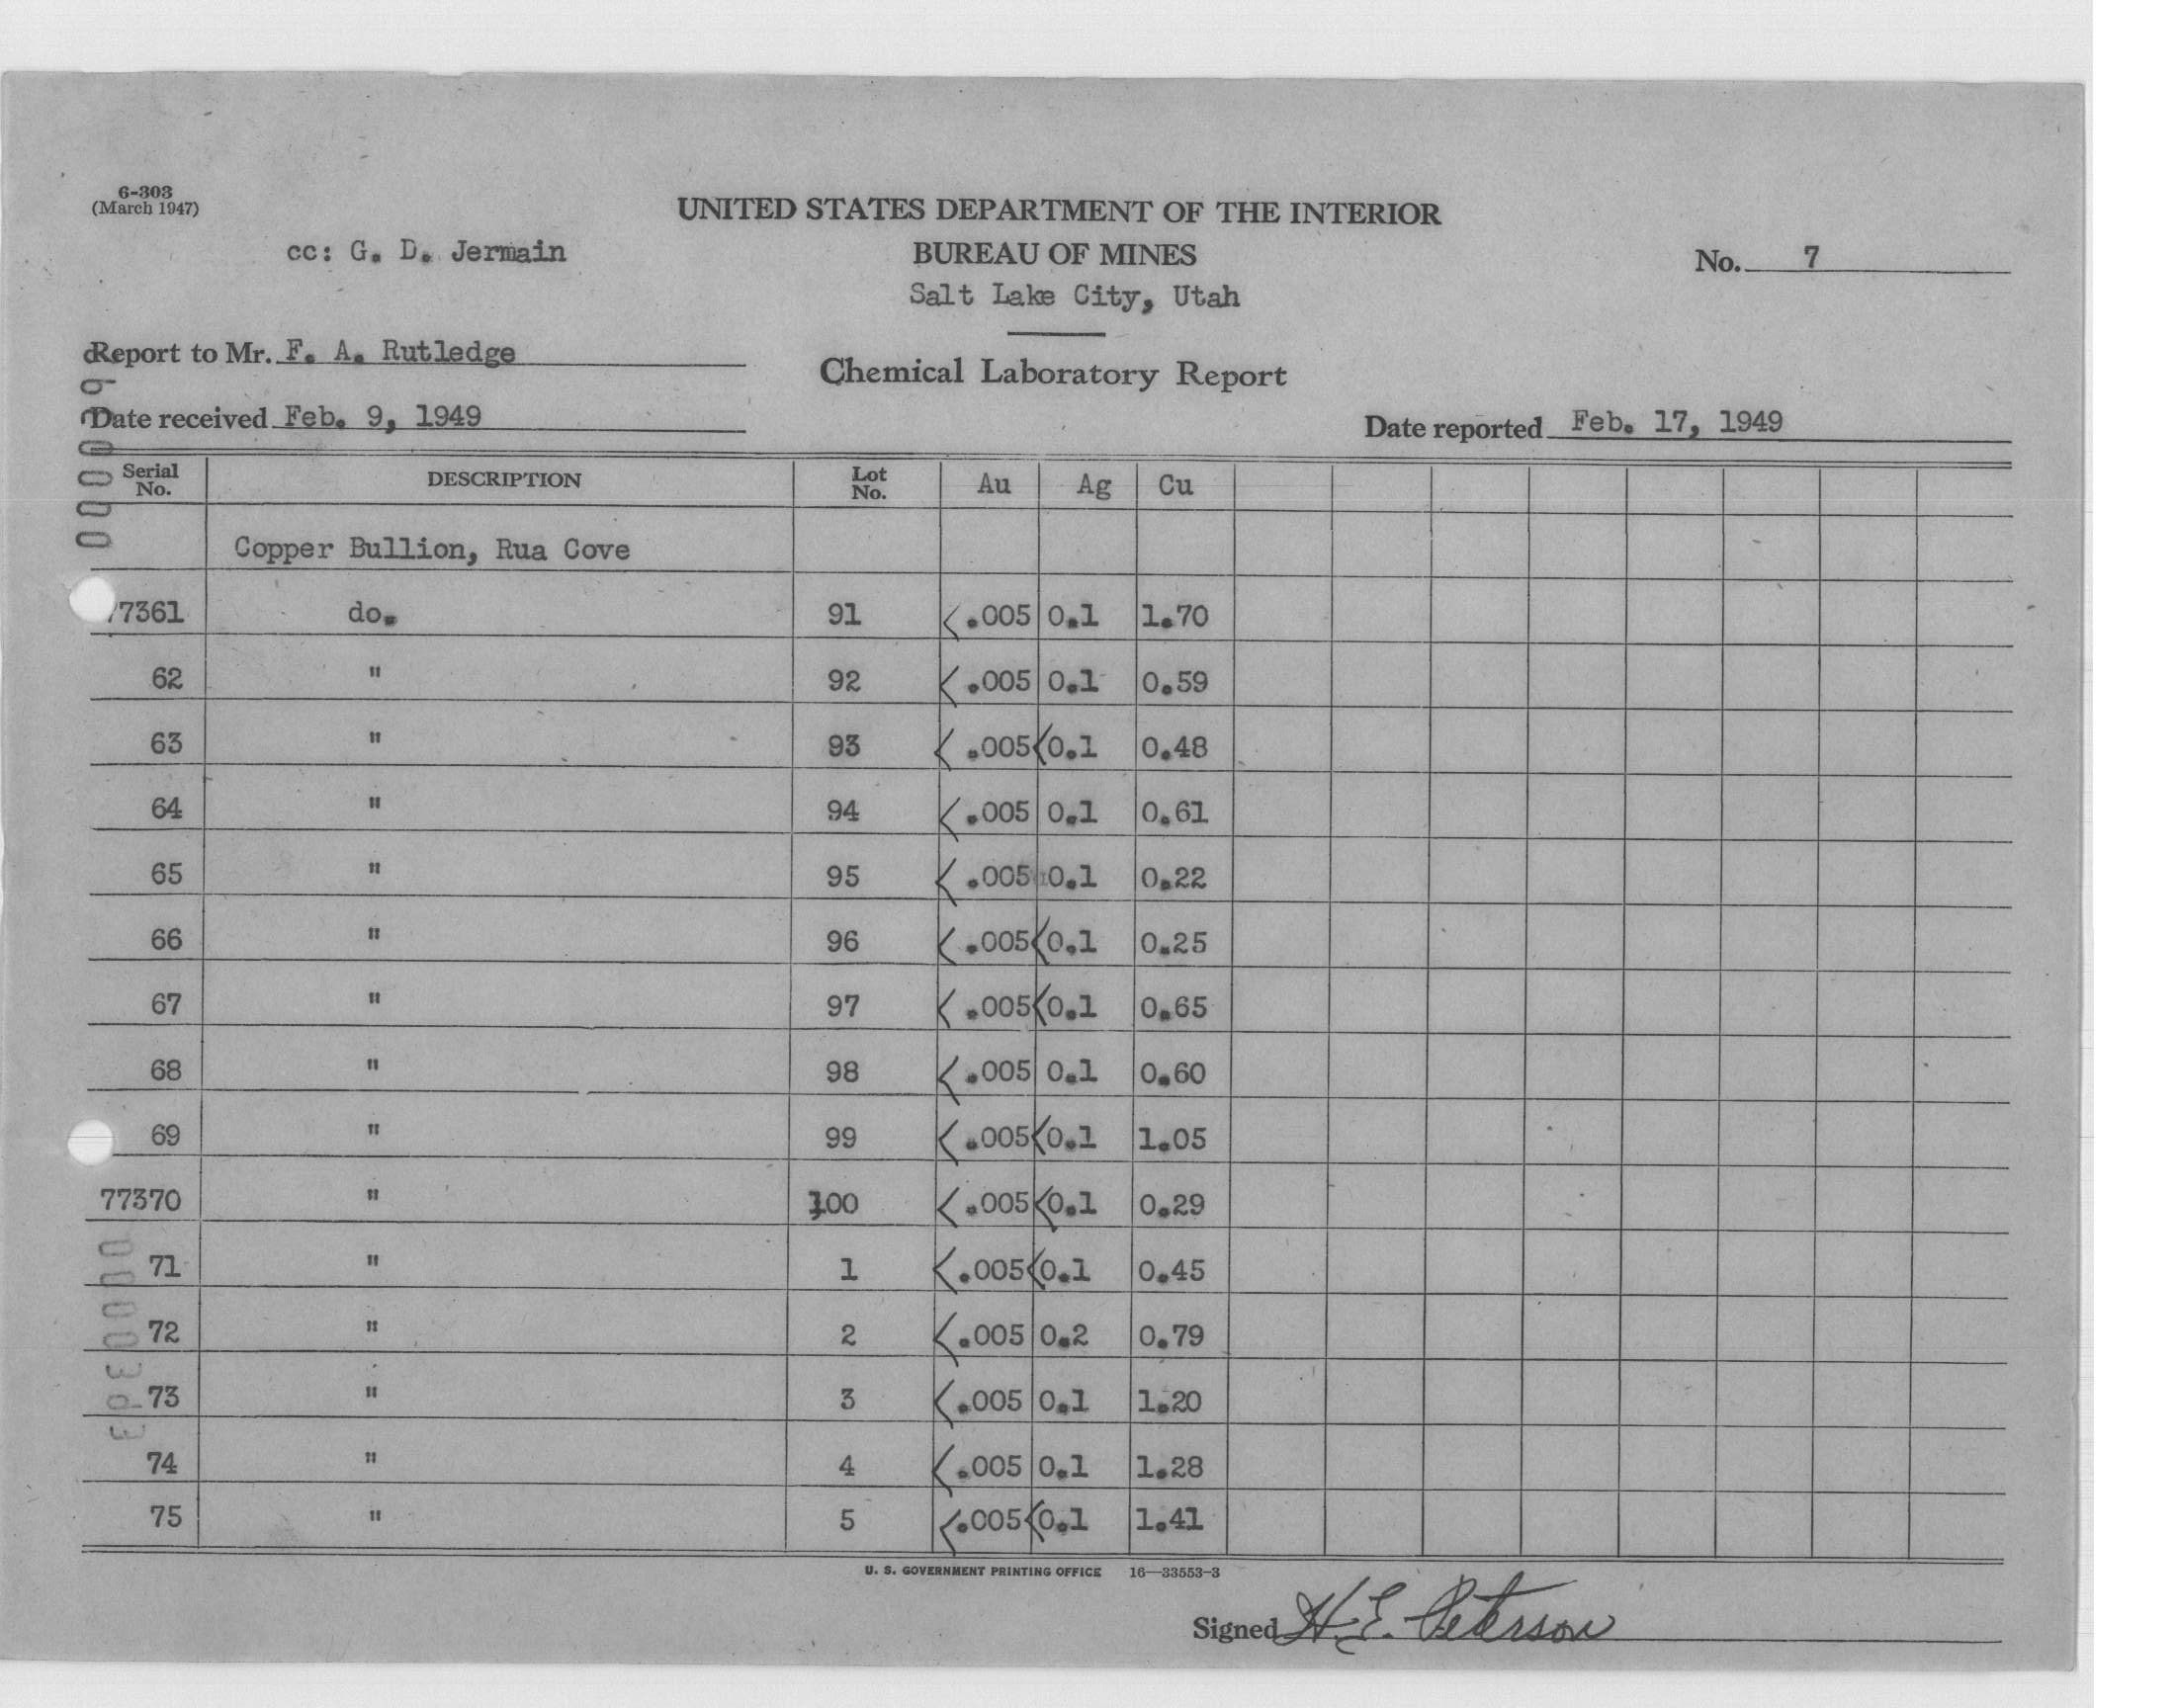 6-303
(March 1947)
cc: G. D. Jermain
UNITED STATES DEPARTMENT OF THE INTERIOR
BUREAU OF MINES
Salt Lake City, Utah
No. 7
Report to Mr. F. A. Rutledge
Chemical Laboratory Report
Date received Feb. 9, 1949
Date reported Feb. 17, 1949
Serial No. DESCRIPTION Lot No. Au Ag Cu
Copper Bullion, Rua Cove
77361 do. 91 <.005 0.1 1.70
62 " 92 <.005 0.1 0.59
63 " 93 <.005 <0.1 0.48
64 " 94 <.005 0.1 0.61
65 " 95 <.005 0.1 0.22
66 " 96 <.005 <0.1 0.25
67 " 97 <.005 <0.1 0.65
68 " 98 <.005 0.1 0.60
69 " 99 <.005 <0.1 1.05
77370 " 100 <.005 <0.1 0.29
71 " 1 <.005 <0.1 0.45
72 " 2 <.005 0.2 0.79
73 " 3 <.005 0.1 1.20
74 " 4 <.005 0.1 1.28
75 " 5 <.005 <0.1 1.41
U. S. GOVERNMENT PRINTING OFFICE 16—33553-3
Signed H. E. Peterson